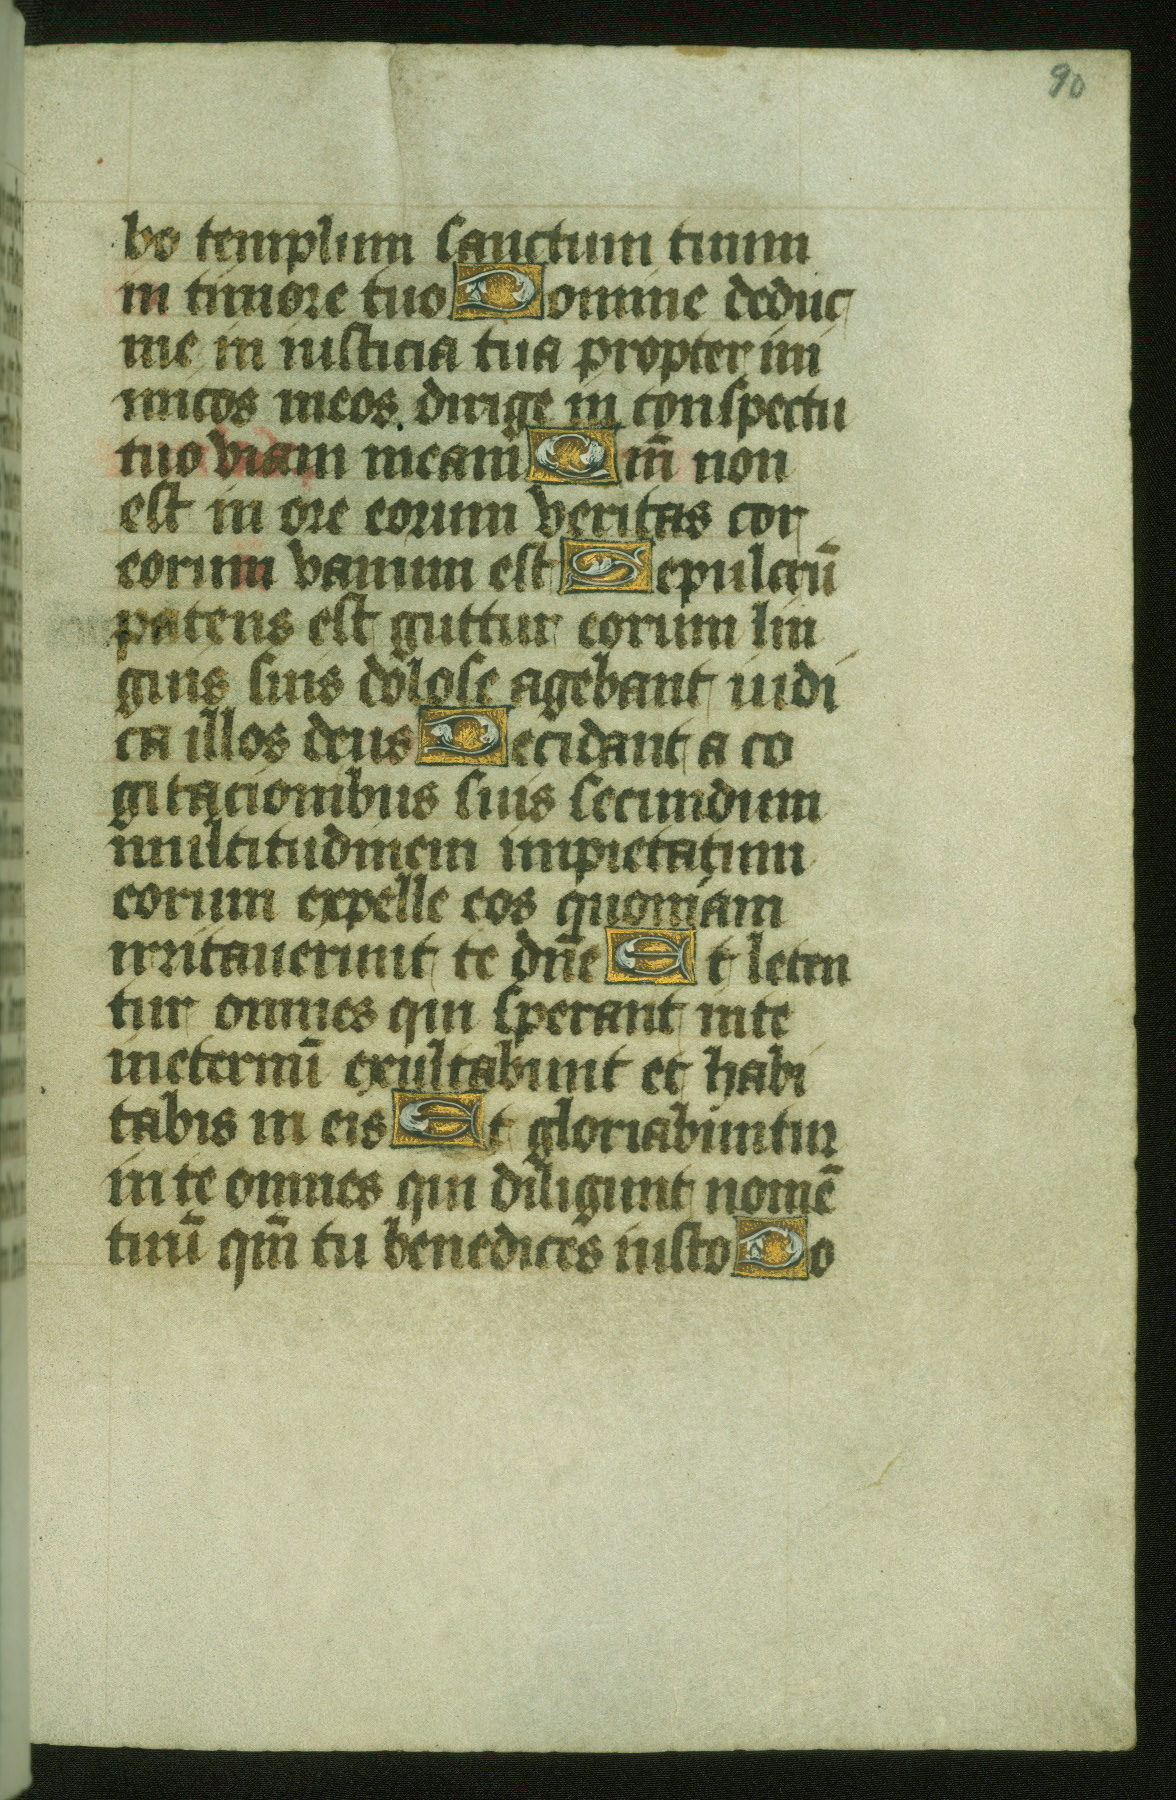 90
bo templum sanctum tuum
in timore tuo Domine deduc
me in iusticia tua propter ini
micos meos. dirige in conspectu
tuo viam meam Qm̄ non
est in ore eorum veritas cor
eorum vanum est Sepulcrū
patens est guttur eorum lin
guis suis dolose agebant iudi
ca illos deus Decidant a co
gitacionibus suis secundum
multitudinem impietatum
eorum expelle eos quoniam
irritauerunt te dn̄e Et leten
tur omnes qui sperant inte
ineternū exultabunt et habi
tabis in eis Et gloriabuntur
in te omnes qui diligunt nomē
tuū qm̄ tu benedices iusto Do